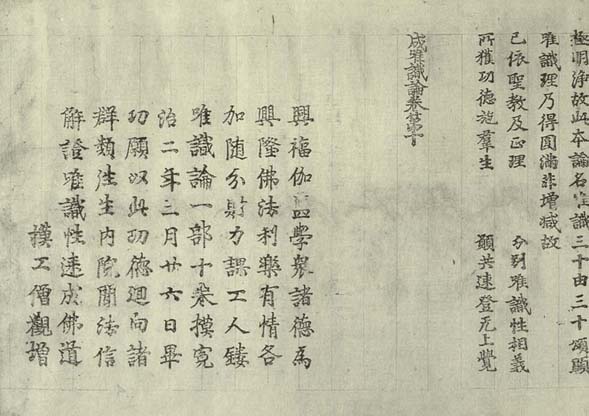 極明淨故此本論名唯識三十由三十頌顯
唯識理乃得圓滿非增減故
已依聖教及正理　分別唯識性相義
所獲功德施羣生　願共速登无上覺
成唯識論卷第十
興福伽藍學衆諸德爲
興隆佛法利樂有情各
加随分財力課工人鏤
唯識論一部十卷摸寛
治二年三月廿六日畢
功願以此功德迴向諸
群類往生内院聞法信
解證唯識性速成佛道
摸工僧觀增